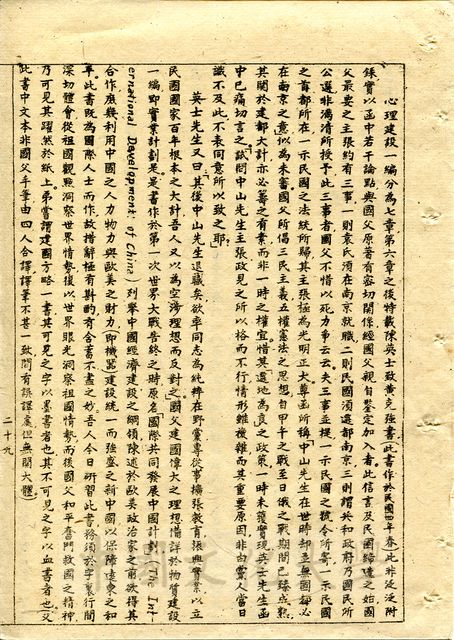 心理建設一編分為七章第六章之後特載陳英士致黃克強書(此書作於民國四年春此非泛泛附
錄實以函中若干論點與國父原著有密切關係經國父親自鑒定加入者。此信言及民國締造之始國
父最要之主張約有三事一則袁氏須在南京就職二則民國須遷都南京三則謂共和政府乃國民所
公選非滿清所授予此三事者國父不惜以死力爭云云夫三事並提一示民國之號令所寄一示民國
之首都所在一示民國之法統所歸其主張極為光明正大尊函所稱「中山先生在世時却並無國都必
在南京之意」似為未審國父所倡三民主義五權憲法之思想自甲午之戰至日俄之戰期間已臻成熟
其關於建都大計亦必籌之有素而非一時之權宜惜其「遷地為良」之政策一時未獲實現英士先生函
中已痛切言之試問中山先生主張政見之所以格而不行情形雖機雜而其重要原因非由黨人當日
識不及此不表同意所以致之耶?
英士先生又曰「其後中山先生退職矣欲率同志為純粹在野黨專從事擴張教育振興實業以立
民國國家百年根本之大計吾人又以為空涉理想而反對之」國父建國偉大之理想備詳於物質建設
一編即實業計劃是。是書作於第一次世界大戰告終之時原名「國際共同發展中國計劃」(The Int-
ernational Development of China)列舉中國經濟建設之綱領陳述於歐美政治家之前欲得其
合作庶幾利用中國之人力物力與歐美之財力(即機器)建設統一而强盛之新中國以保障遠東之和
平此書既為國際人士而作故措辭極有斟酌有含蓄不盡之妙吾人今日研習此書務須於字裏行間
深切體會從祖國觀點洞察世界情勢復以世界眼光洞察祖國情勢而後國父和平奮鬥救國之精神
乃可見其躍然於紙上弟嘗謂建國方略一書其可見之字以墨書者也其不可見之字以血書者也(又
此書中文本非國父手筆由四人合譯譯筆不甚一致間有誤譯處但無關大體)
二十九